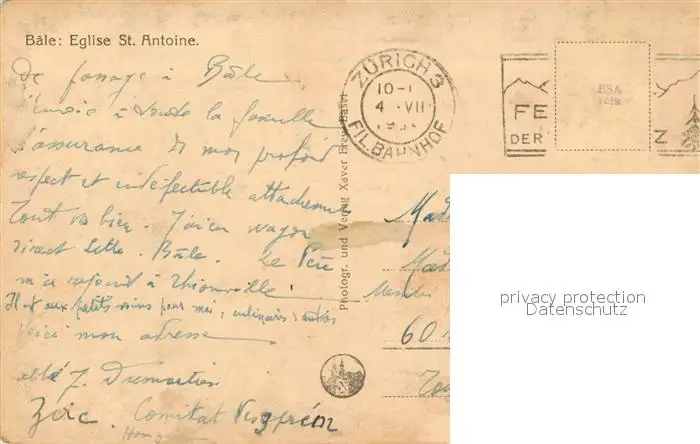 Bâle: Eglise St. Antoine.
De passage à Bâle
j'envoie à toute la famille
l'assurance de mon profond
respect et indéfectible attachement
Tout va bien. J'ai un wagon
direct Lille - Bâle. Le Père
m'a rejoint à Thionville!
Il est aux petits soins pour moi, culinaires & autres
Voici mon adresse
abbé J. Dumortier
Zirc. Comitat Veszprém
Photogr. und Verlag Xaver Frey, Basel
ZÜRICH 3
10-1
4. VII
FIL. BAHNHOF
FE
DER
Z
60
privacy protection
Datenschutz